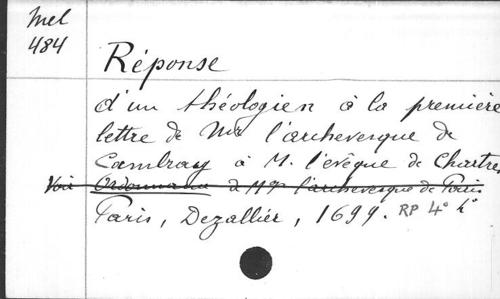 Mel
484
Réponse
d'un théologien à la première
lettre de Mr l'archevesque de
Cambray à M. l'evéque de Chartres
Voir Ordonnance de Mgr l'archevesque de Paris
Paris, Dezallier, 1699. RP 4° h°